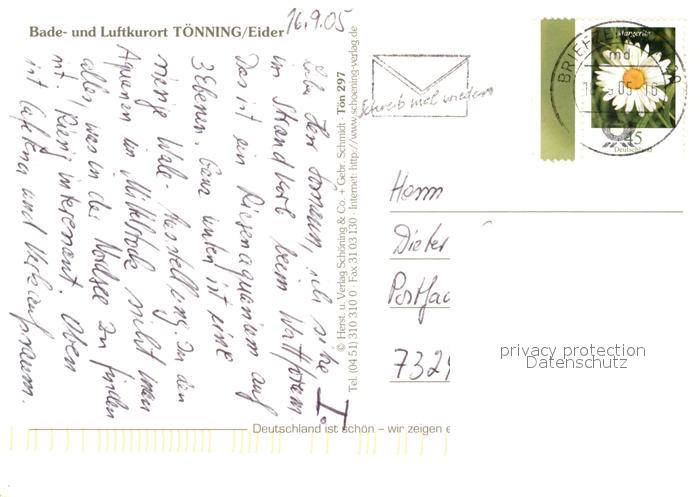 Bade- und Luftkurort TÖNNING/Eider
16.9.05
I.
im Strandkorb beim Wattforum
Das ist ein Riesenaquarium auf
3 Ebenen. Ganz unten ist eine
riesige Wale-Ausstellung. In den
Aquarien im Mittelstock sieht man
alles, was in der Nordsee zu finden
ist. Riesig interessant. Oben
ist Cafeteria und Verkaufsraum.
© Herst. u. Verlag Schöning & Co. + Gebr. Schmidt · Tön 297
Tel. (04 51) 310 310 0 · Fax 31 03 130 · Internet: http://www.schoening-verlag.de
Deutschland ist schön – wir zeigen e
Schreib mal wieder
Margerite
BRIEFZE
md
45
Deutschland
Herrn
Dieter
Postfac
732
privacy protection
Datenschutz